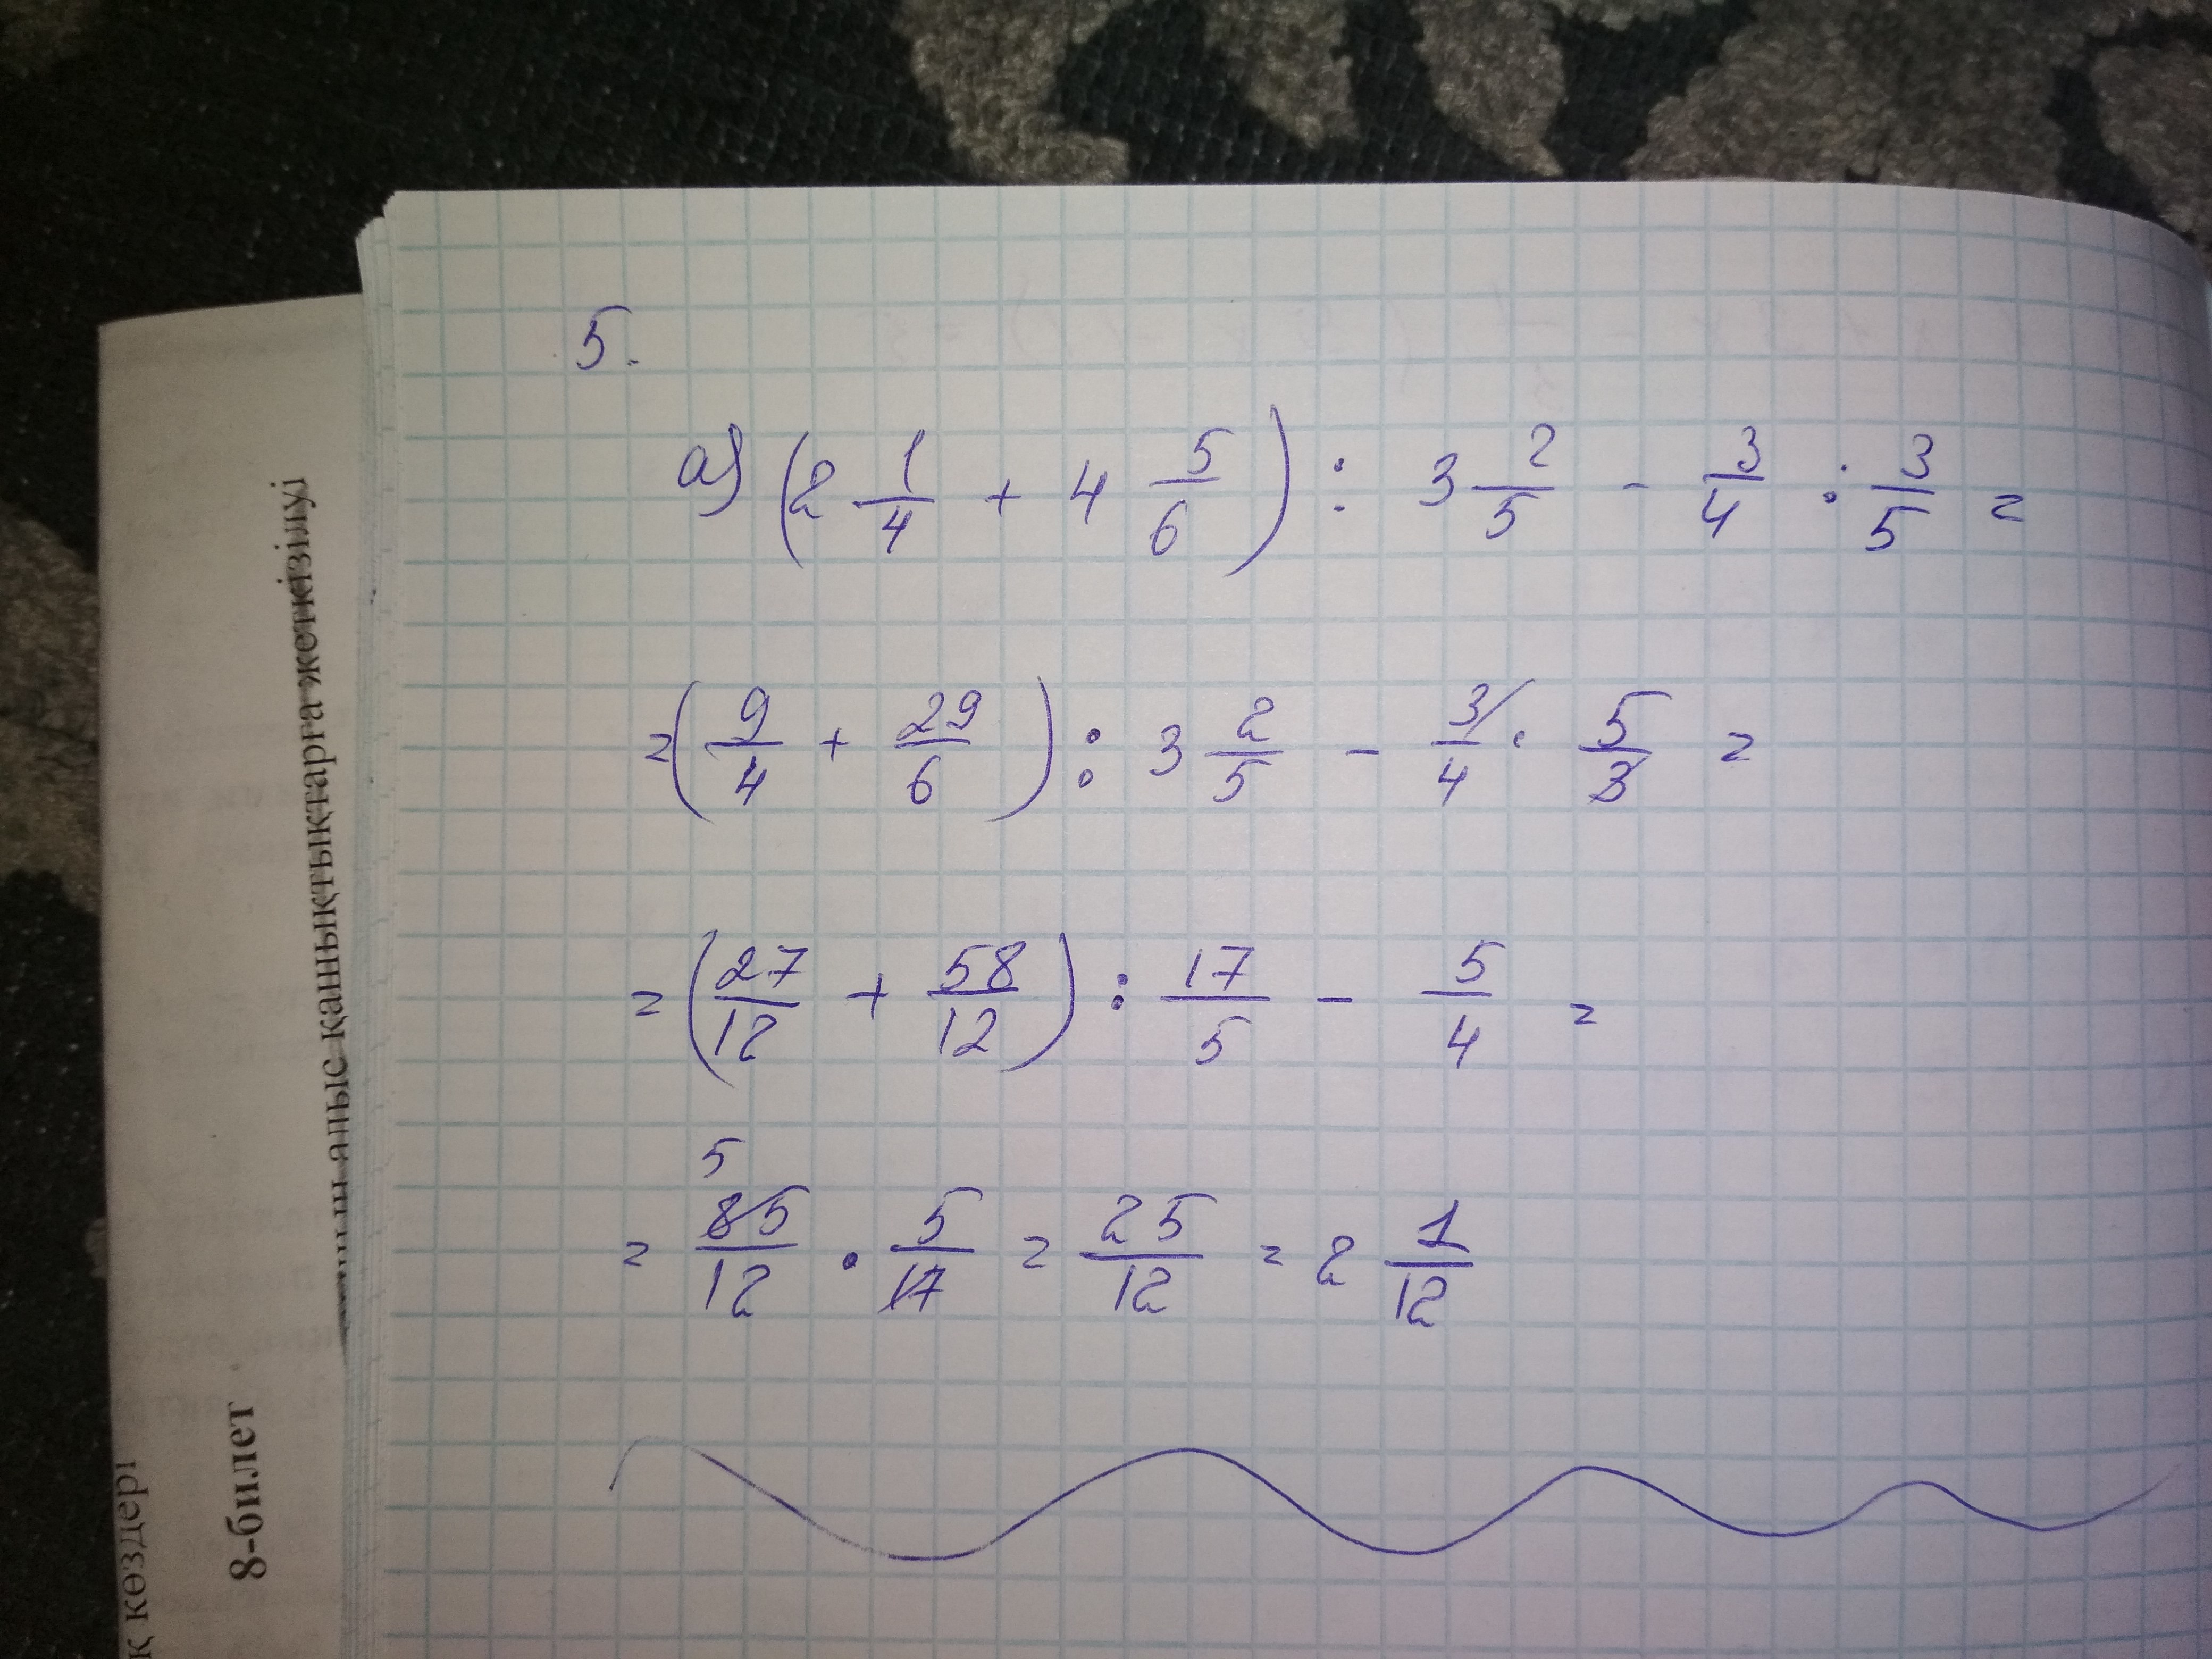 5.
а) (2 1/4 + 4 5/6) : 3 2/5 - 3/4 : 3/5 =
= (9/4 + 29/6) : 3 2/5 - 3/4 · 5/3 =
= (27/12 + 58/12) : 17/5 - 5/4 =
5
= 85/12 · 5/17 = 25/12 = 2 1/12
алыс қашықтықтарға жеткізілуі
8-билет
көздері